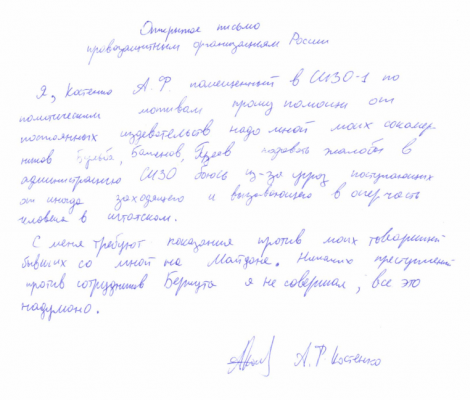 Открытое письмо
правозащитным организациям России
Я, Костенко А.Ф. помещенный в СИЗО-1 по
политическим мотивам прошу помощи от
постоянных издевательств надо мной моих сокамер
ников Баженов, подавать жалобы в
администрацию СИЗО боюсь из-за угроз поступающих
от иногда заходящего и вызывающего в оперчасть
человека в штатском.
С меня требуют показания против моих товарищей
бывших со мной на Майдане. Никаких преступлений
против сотрудников Беркута я не совершал, все это
надумано.
А.Ф. Костенко